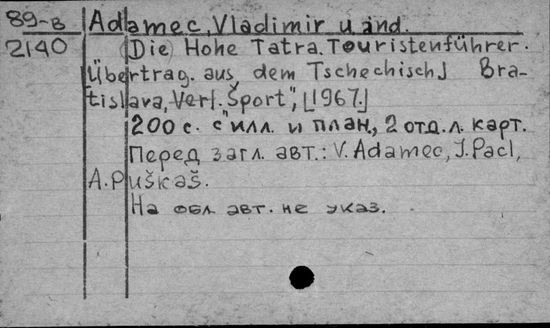 89-в Adamec, Vladimir u. and.
2140 (Die) Hohe Tatra. Touristenführer.
Übertrag. aus dem Tschechisch] Bra-
tislava, Verl. "Šport", [1967.]
200 с. с илл. и план., 2 отд. л. карт.
Перед загл. авт.: V. Adamec, J. Pacl,
A. Puškaš.
На обл. авт. не указ.